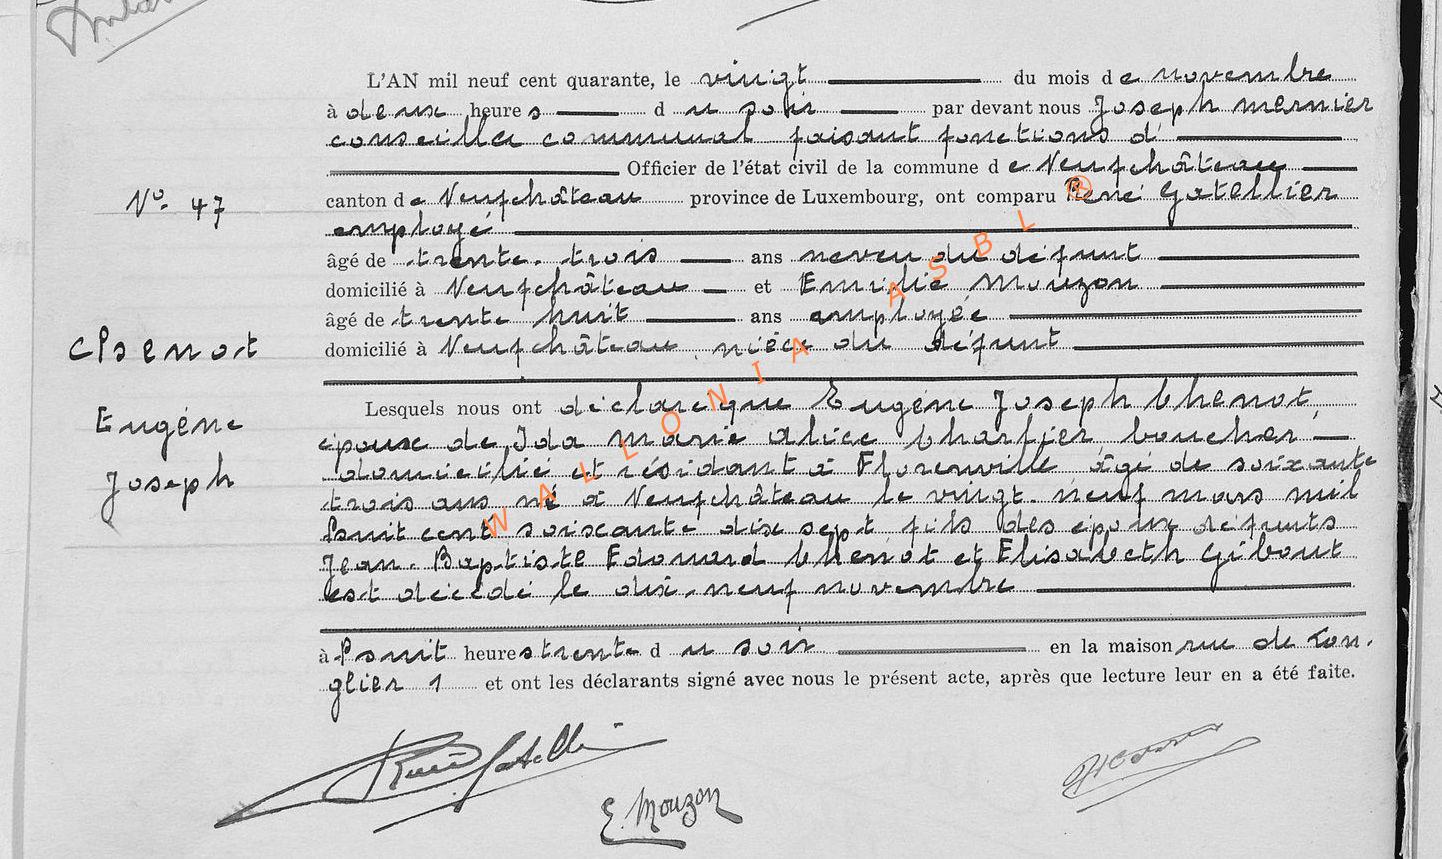 L'AN mil neuf cent quarante, le vingt du mois de novembre
à deux heures du soir par devant nous Joseph Mernier
conseiller communal faisant fonctions d'
Officier de l'état civil de la commune de Neufchâteau
N° 47
canton de Neufchâteau province de Luxembourg, ont comparu René Gatellier
employé
âgé de trente-trois ans neveu du défunt
domicilié à Neufchâteau et Emilie Mouzon
âgé de trente huit ans employée
domicilié à Neufchâteau, nièce du défunt
Chenot
Eugène
Joseph
Lesquels nous ont déclaré que Eugène Joseph Chenot,
époux de Ida Marie Alice Charlier boucher
domicilié et résidant à Florenville âgé de soixante
trois ans né à Neufchâteau le vingt-neuf mars mil
huit cent soixante dix sept fils des époux défunts
Jean-Baptiste Edouard Chenot et Elisabeth Gibout
est décédé le dix-neuf novembre
à huit heures trente du soir en la maison rue de Lon-
glier 1 et ont les déclarants signé avec nous le présent acte, après que lecture leur en a été faite.
René Gatelli
E. Mouzon
WALLONIA ASBL ®